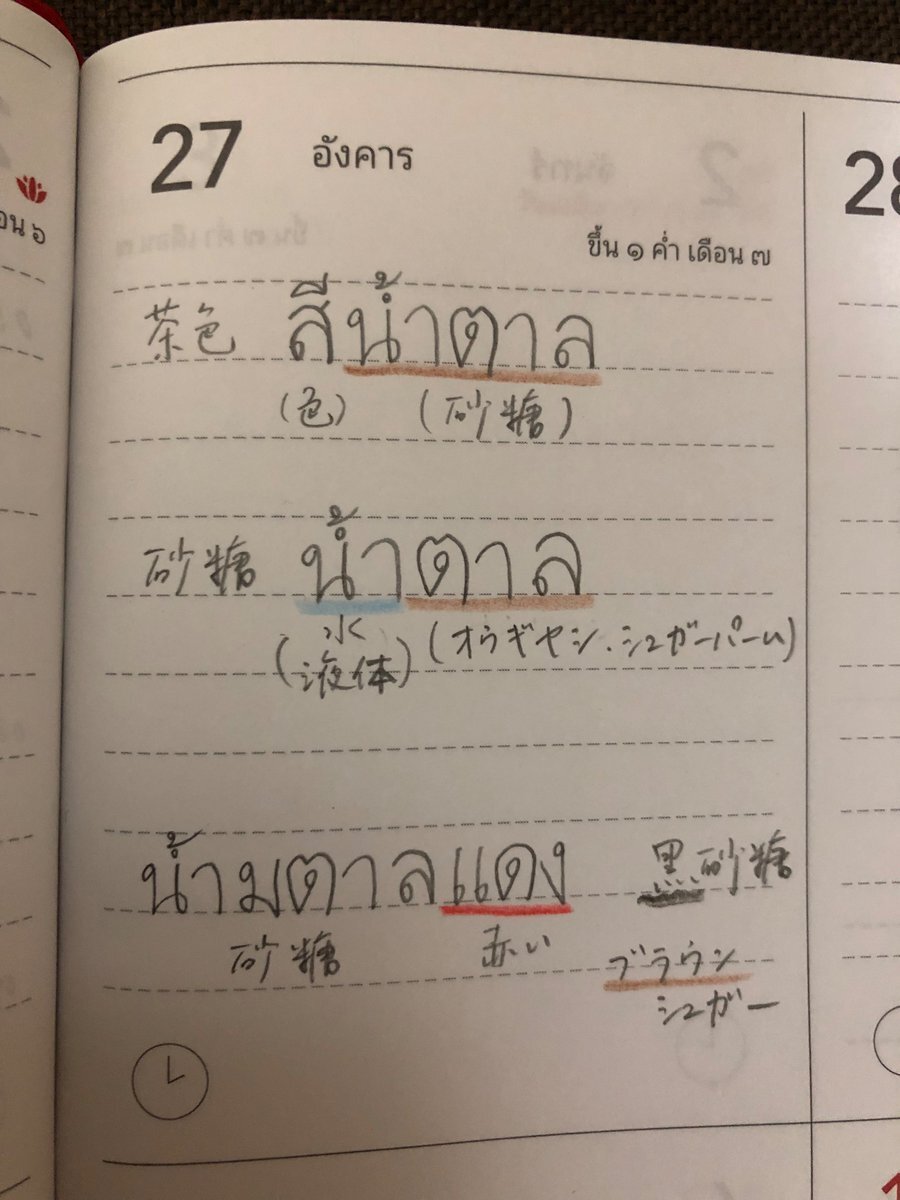 27 อังคาร
ขึ้น ๑ ค่ำ เดือน ๗
茶色 สีน้ำตาล
(色) (砂糖)
砂糖 น้ำตาล
(水 液体) (オウギヤシ.シュガーパーム)
น้ำมตาลแดง 黒砂糖
砂糖 赤い ブラウン
シュガー
28
อน ๖